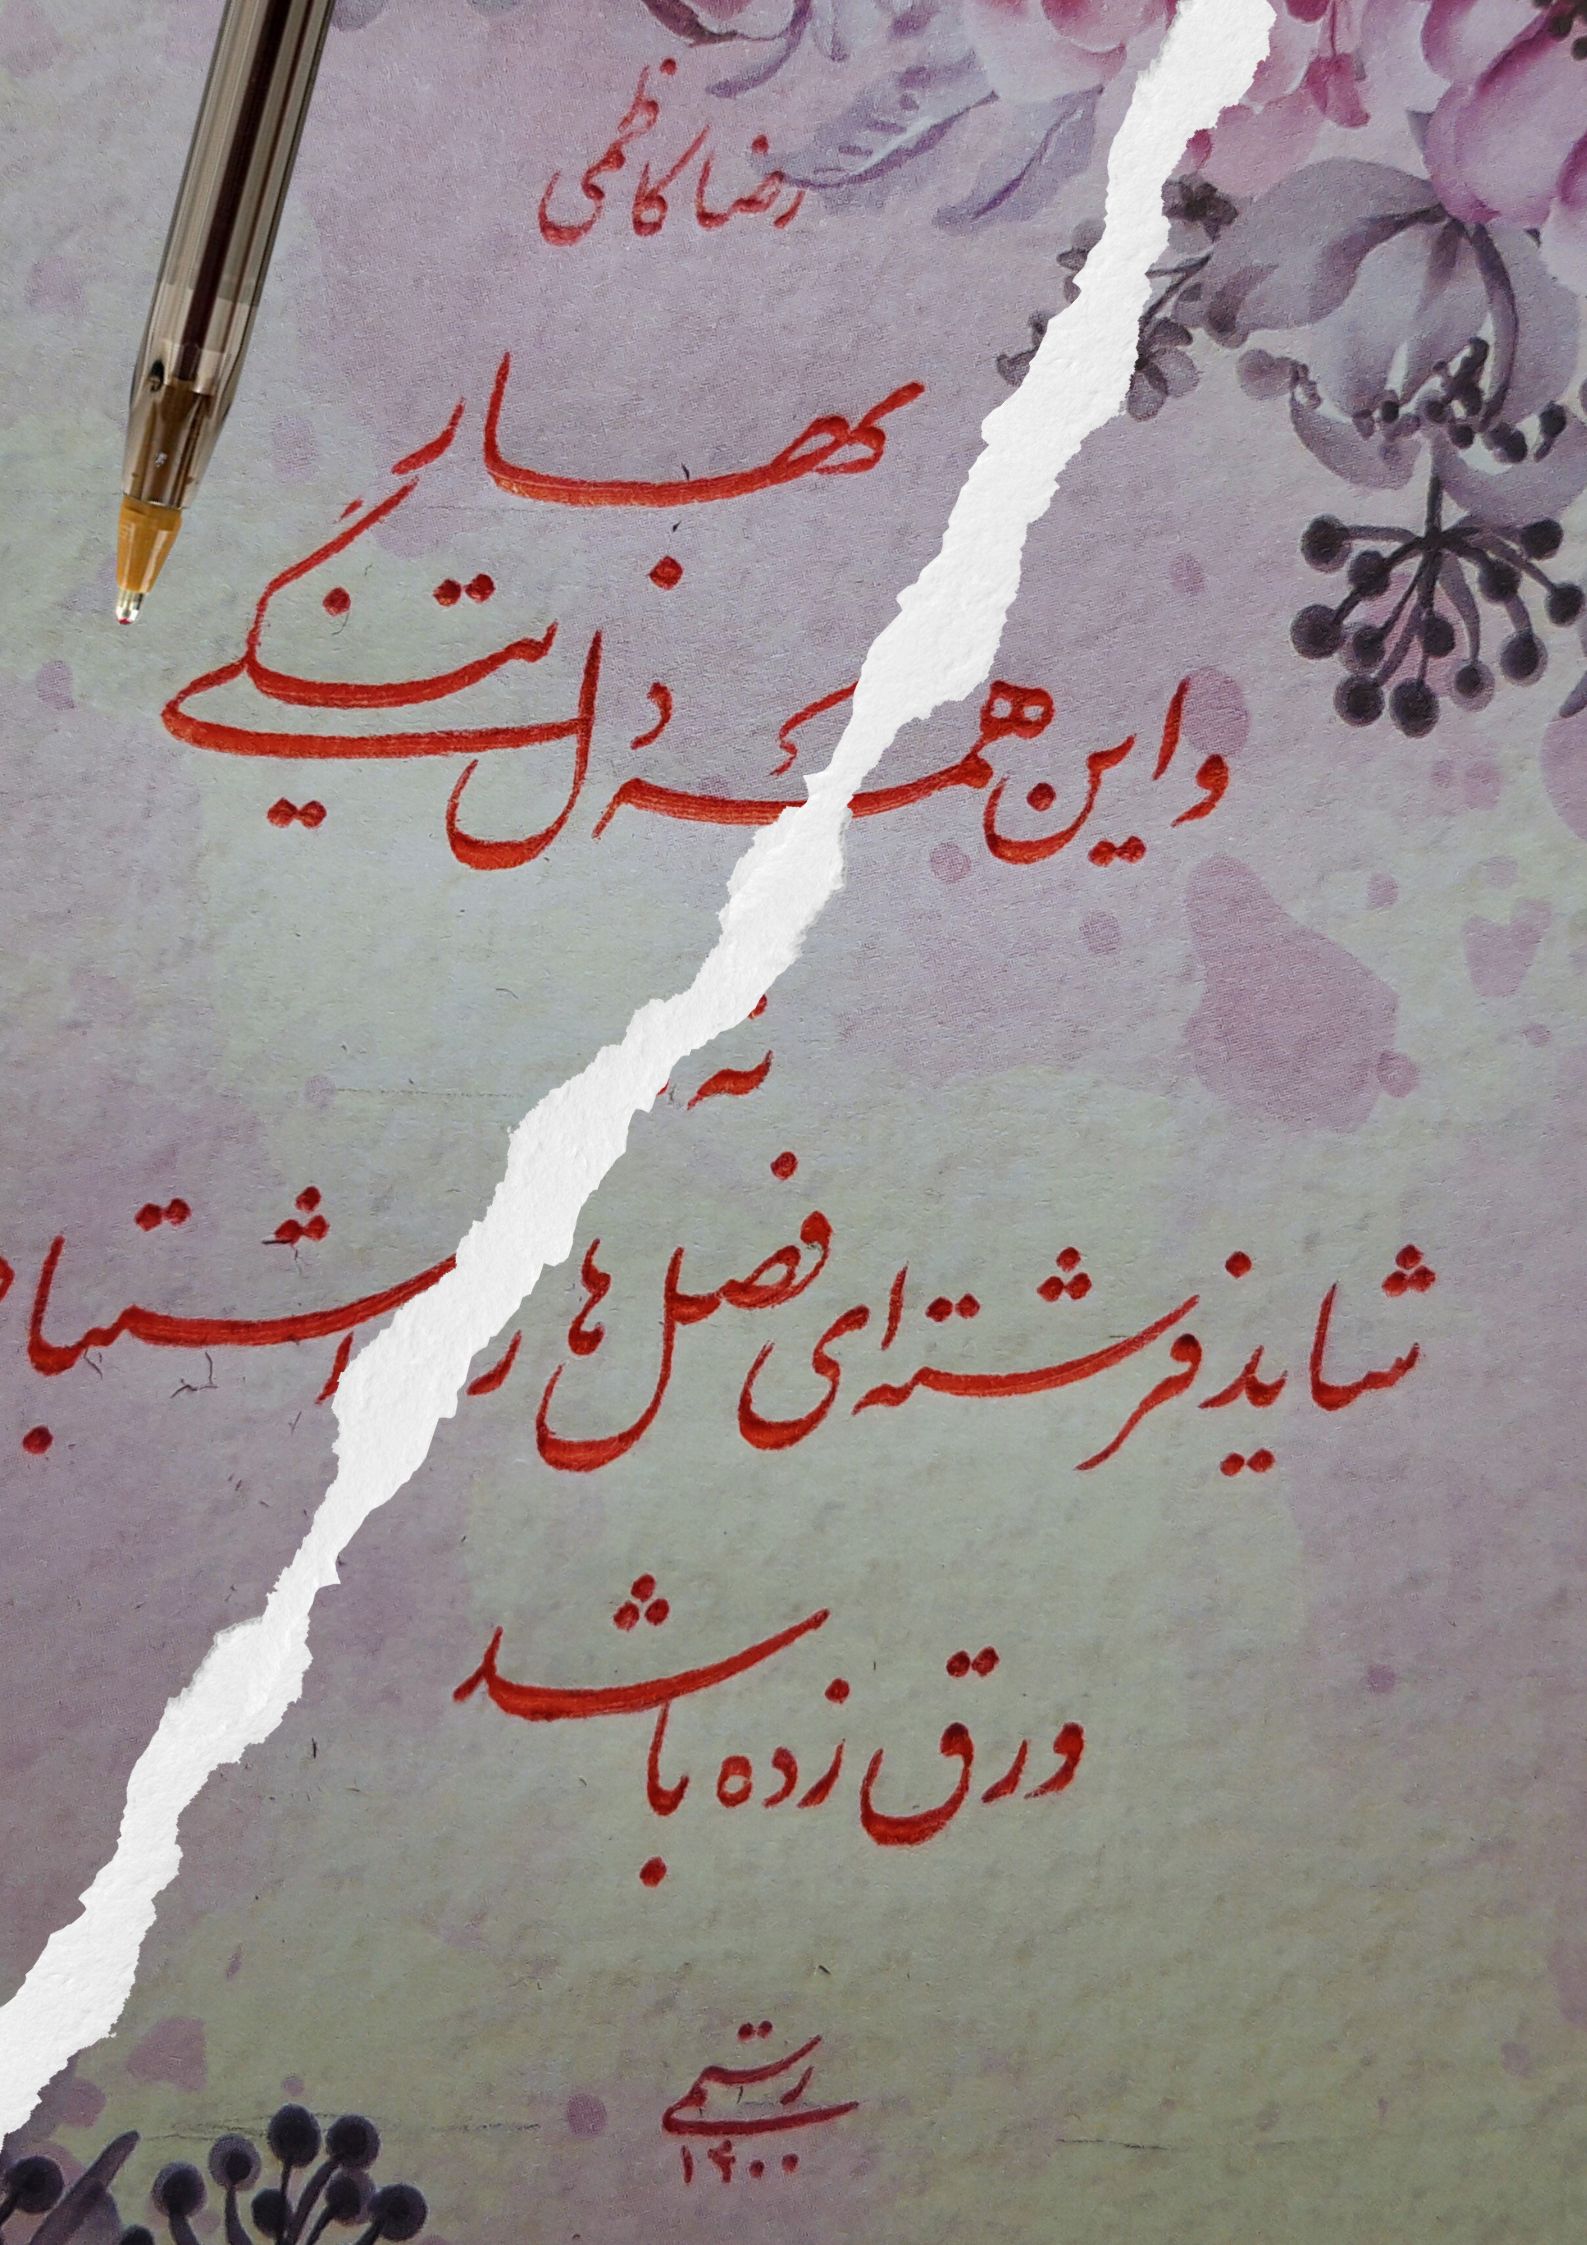 رضا کاظمی
بهار
و این همه دلتنگی
نه
شاید فرشته ای فصل ها را اشتباه
ورق زده باشد
رستمی
۱۴۰۰